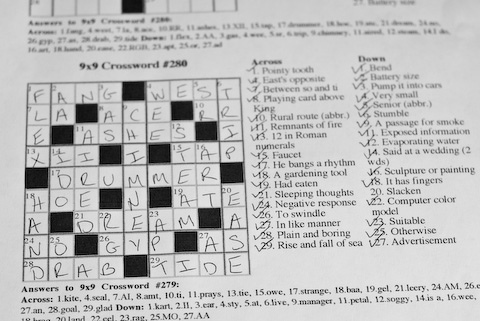 27. Battery size
Answers to 9x9 Crossword #280:
Across: 1.fang, 4.west, 7.la, 8.ace, 10.RR, 11.ashes, 13.XII, 15.tap, 17.drummer, 18.hoe, 19.ate, 21.dream, 24.no,
26.gyp, 27.as, 28.drab, 29.tide Down: 1.flex, 2.AA, 3.gas, 4.wee, 5.sr, 6.trip, 9.chimney, 11.aired, 12.steam, 14.I do,
16.art, 18.hand, 20.ease, 22.RGB, 23.apt, 25.or, 27.ad
9x9 Crossword #280
F A N G W E S T
L A A C E R R
E A S H E S I
X I I I T A P
D R U M M E R
H O E N A T E
A D R E A M A
N O G Y P A S
D R A B T I D E
Across
1. Pointy tooth
4. East's opposite
7. Between so and ti
8. Playing card above
King
10. Rural route (abbr.)
11. Remnants of fire
13. 12 in Roman
numerals
15. Faucet
17. He bangs a rhythm
18. A gardening tool
19. Had eaten
21. Sleeping thoughts
24. Negative response
26. To swindle
27. In like manner
28. Plain and boring
29. Rise and fall of sea
Down
1. Bend
2. Battery size
3. Pump it into cars
4. Very small
5. Senior (abbr.)
6. Stumble
9. A passage for smoke
11. Exposed information
12. Evaporating water
14. Said at a wedding (2
wds)
16. Sculpture or painting
18. It has fingers
20. Slacken
22. Computer color
model
23. Suitable
25. Otherwise
27. Advertisement
Answers to 9x9 Crossword #279:
Across: 1.kite, 4.seal, 7.AI, 8.amt, 10.ti, 11.prays, 13.tie, 15.owe, 17.strange, 18.baa, 19.gel, 21.leery, 24.AM, 26.e
27.an, 28.goal, 29.glad Down: 1.kart, 2.II, 3.ear, 4.sty, 5.at, 6.live, 9.manager, 11.petal, 12.soggy, 14.is a, 16.wee,
20.land, 22.eel, 23.rag, 25.MO, 27.AA